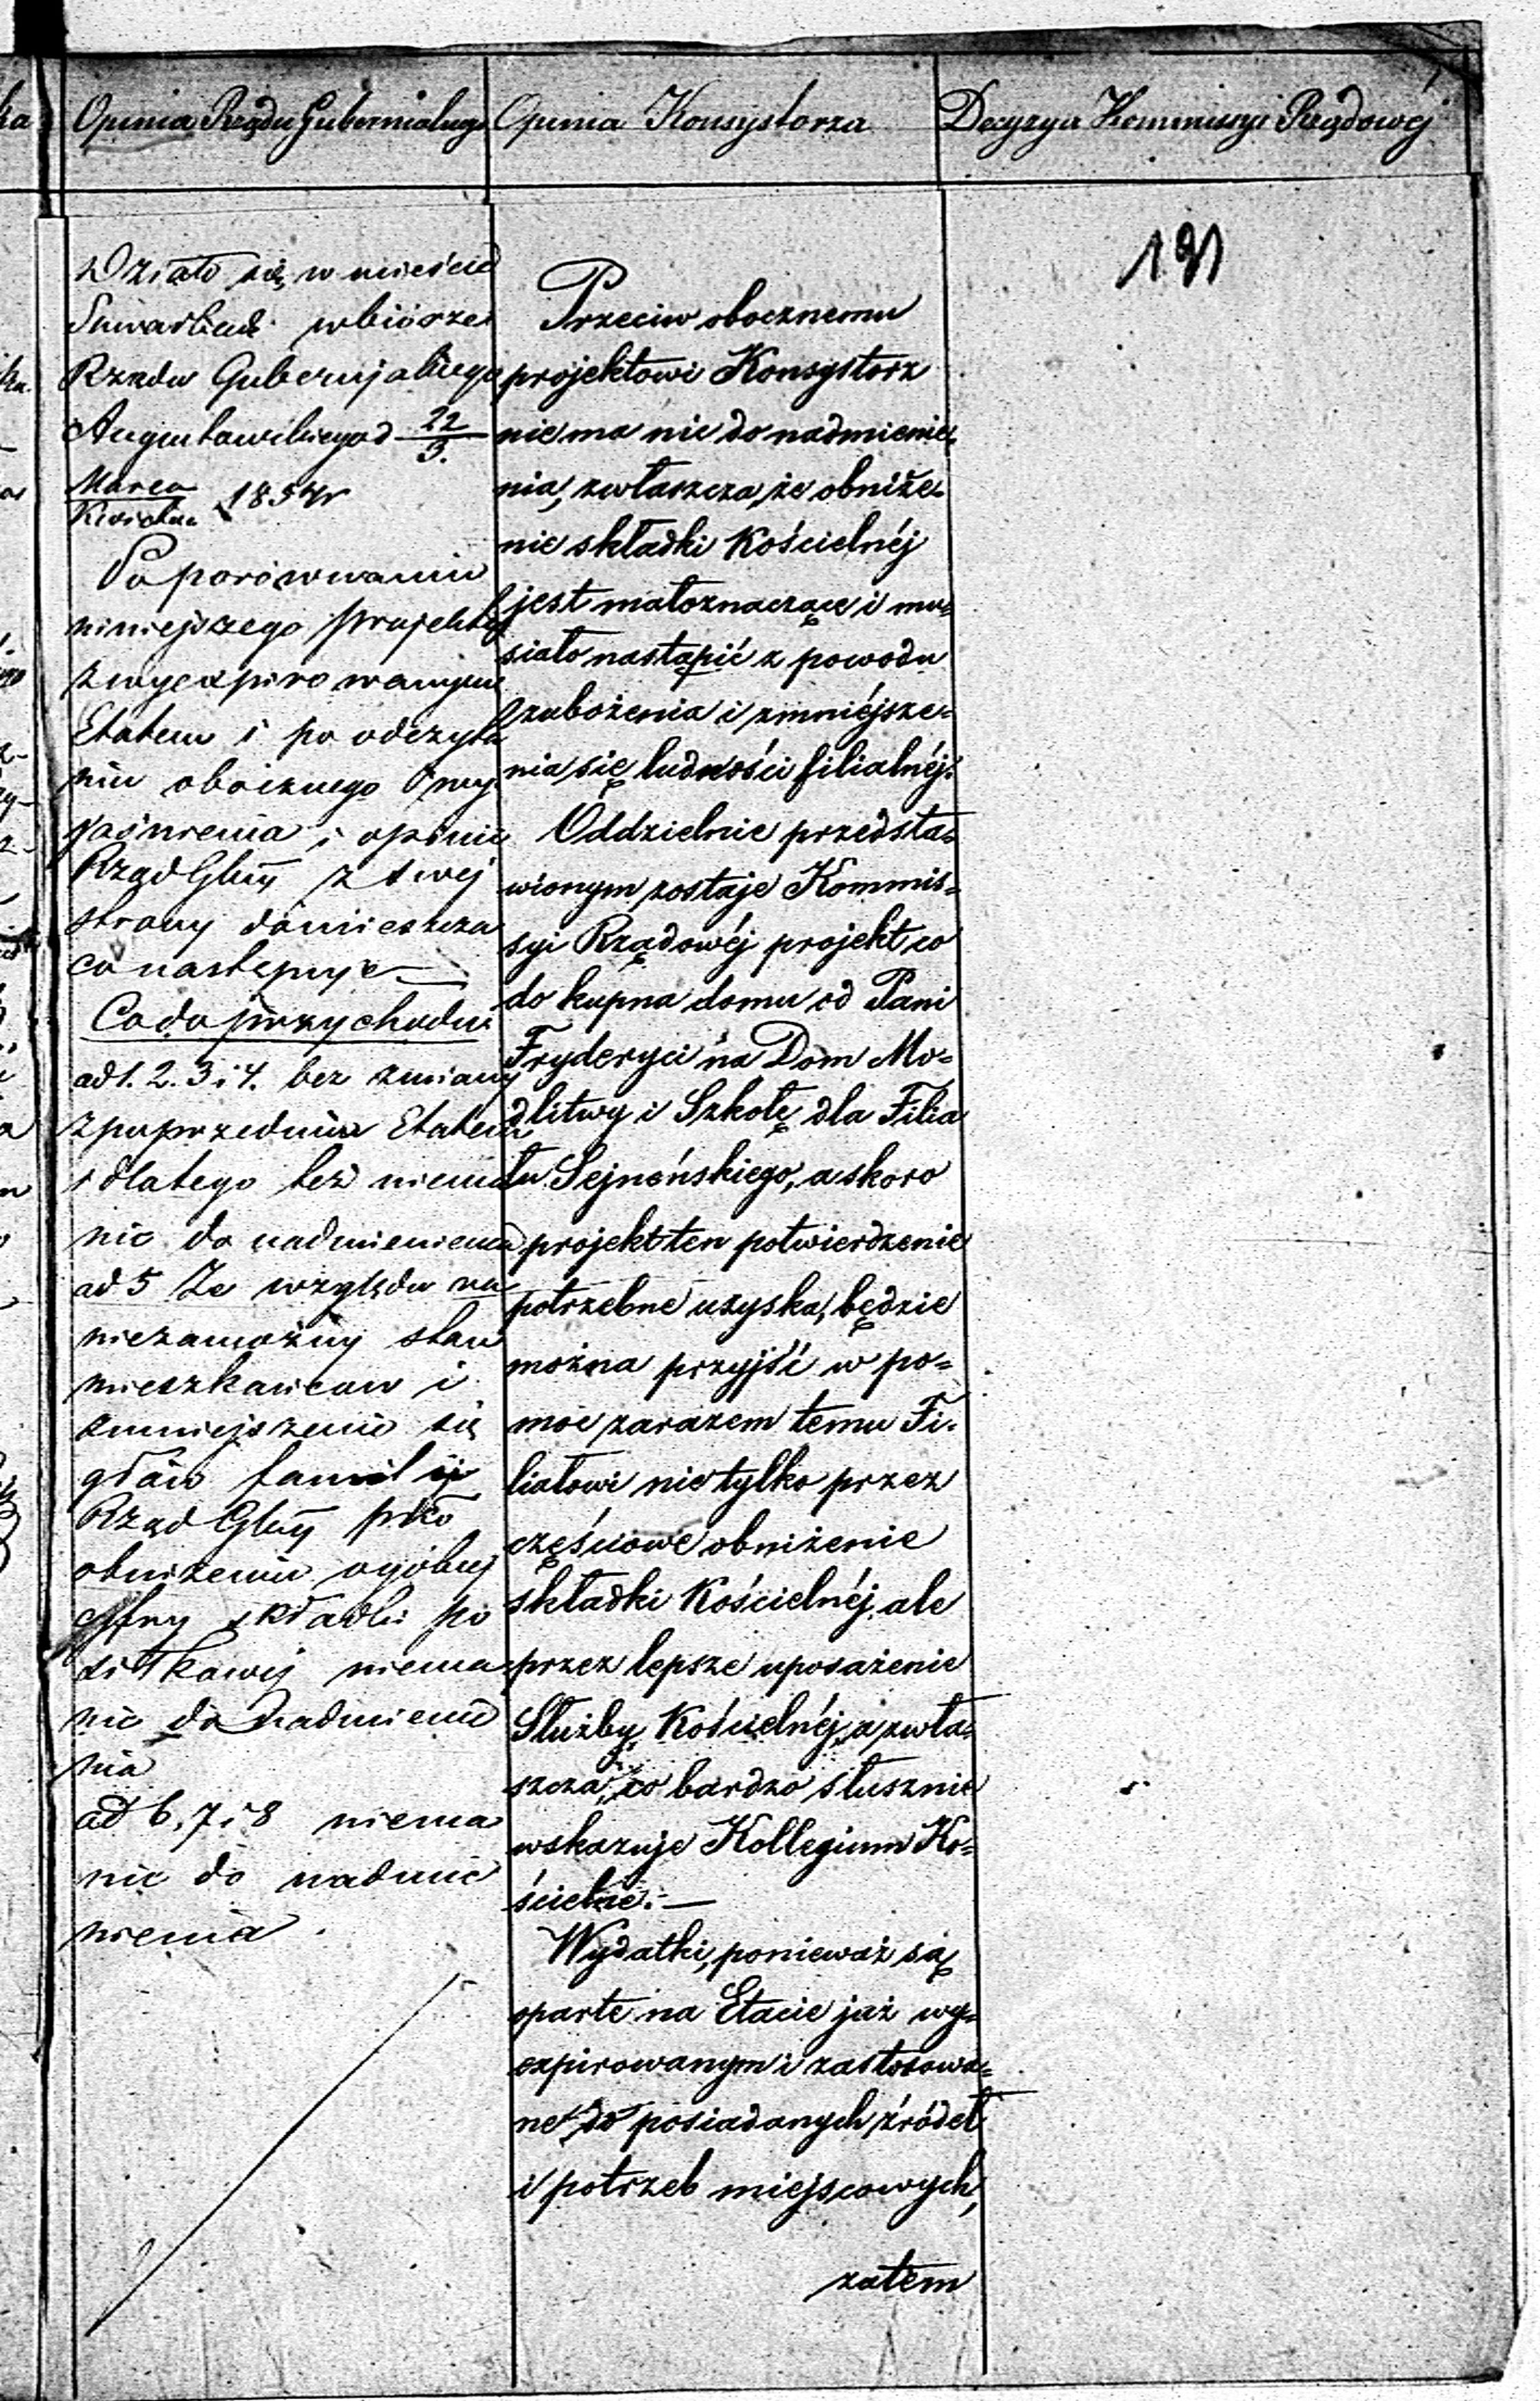 Opinia Rządu Gubernialnego
Działo się w mieście
Suwałkach w biórze
Rządu Gubernjalnego
Augustowskiego d 22/3.
Marca/Kwietnia 1854 r
Po porównaniu
niniejszego projektu
z wyexpirowanym
Etatem i po odczyta
niu obocznego wy
jaśnienia i opinii
Rząd Glny z swej
strony domieszcza
co następuje
Co do przychodu
ad 1. 2. 3 i 4. bez zmiany
z poprzednim Etatem
i dlatego też niema
nic do nadmienienia
ad 5 Ze względu na
niezamożny stan
mieszkańców i
zmniejszenie się
głów familij
Rząd Glny pko
obniżeniu ogólnej
cyfry składki po
siłkowej niema
nic do nadmienie
nia
ad 6, 7 i 8 niema
nic do nadmie
nienia.
Opinia Konsystorza
Przeciw obocznemu
projektowi Konsystorz
nie ma nic do nadmienie-
nia, zwłaszcza, że obniże-
nie składki Kościelnéj
jest małoznaczące i mu-
siało nastąpić z powodu
zubożenia i zmniéjsze-
nia się ludności filialnéj.
Oddzielnie przedsta-
wionym zostaje Kommis-
syi Rządowéj projekt co
do kupna domu od Pani
Fryderyci na Dom Mo-
dlitwy i Szkołę dla Filia
łu Sejneńskiego, a skoro
projekt ten potwierdzenie
potrzebne uzyska, będzie
można przyjść w po-
moc zarazem temu Fi-
liałowi nietylko przez
częściowe obniżenie
składki Kościelnéj, ale
przez lepsze uposażenie
Służby Kościelnéj, a zwła-
szcza, co bardzo słusznie
wskazuje Kollegium Ko-
ścielne.—
Wydatki, ponieważ są
oparte na Etacie już wy-
expirowanym i zastosowa-
ne do posiadanych źródeł
i potrzeb miejscowych,
zatem
Decyzya Kommissyi Rządowéj
191